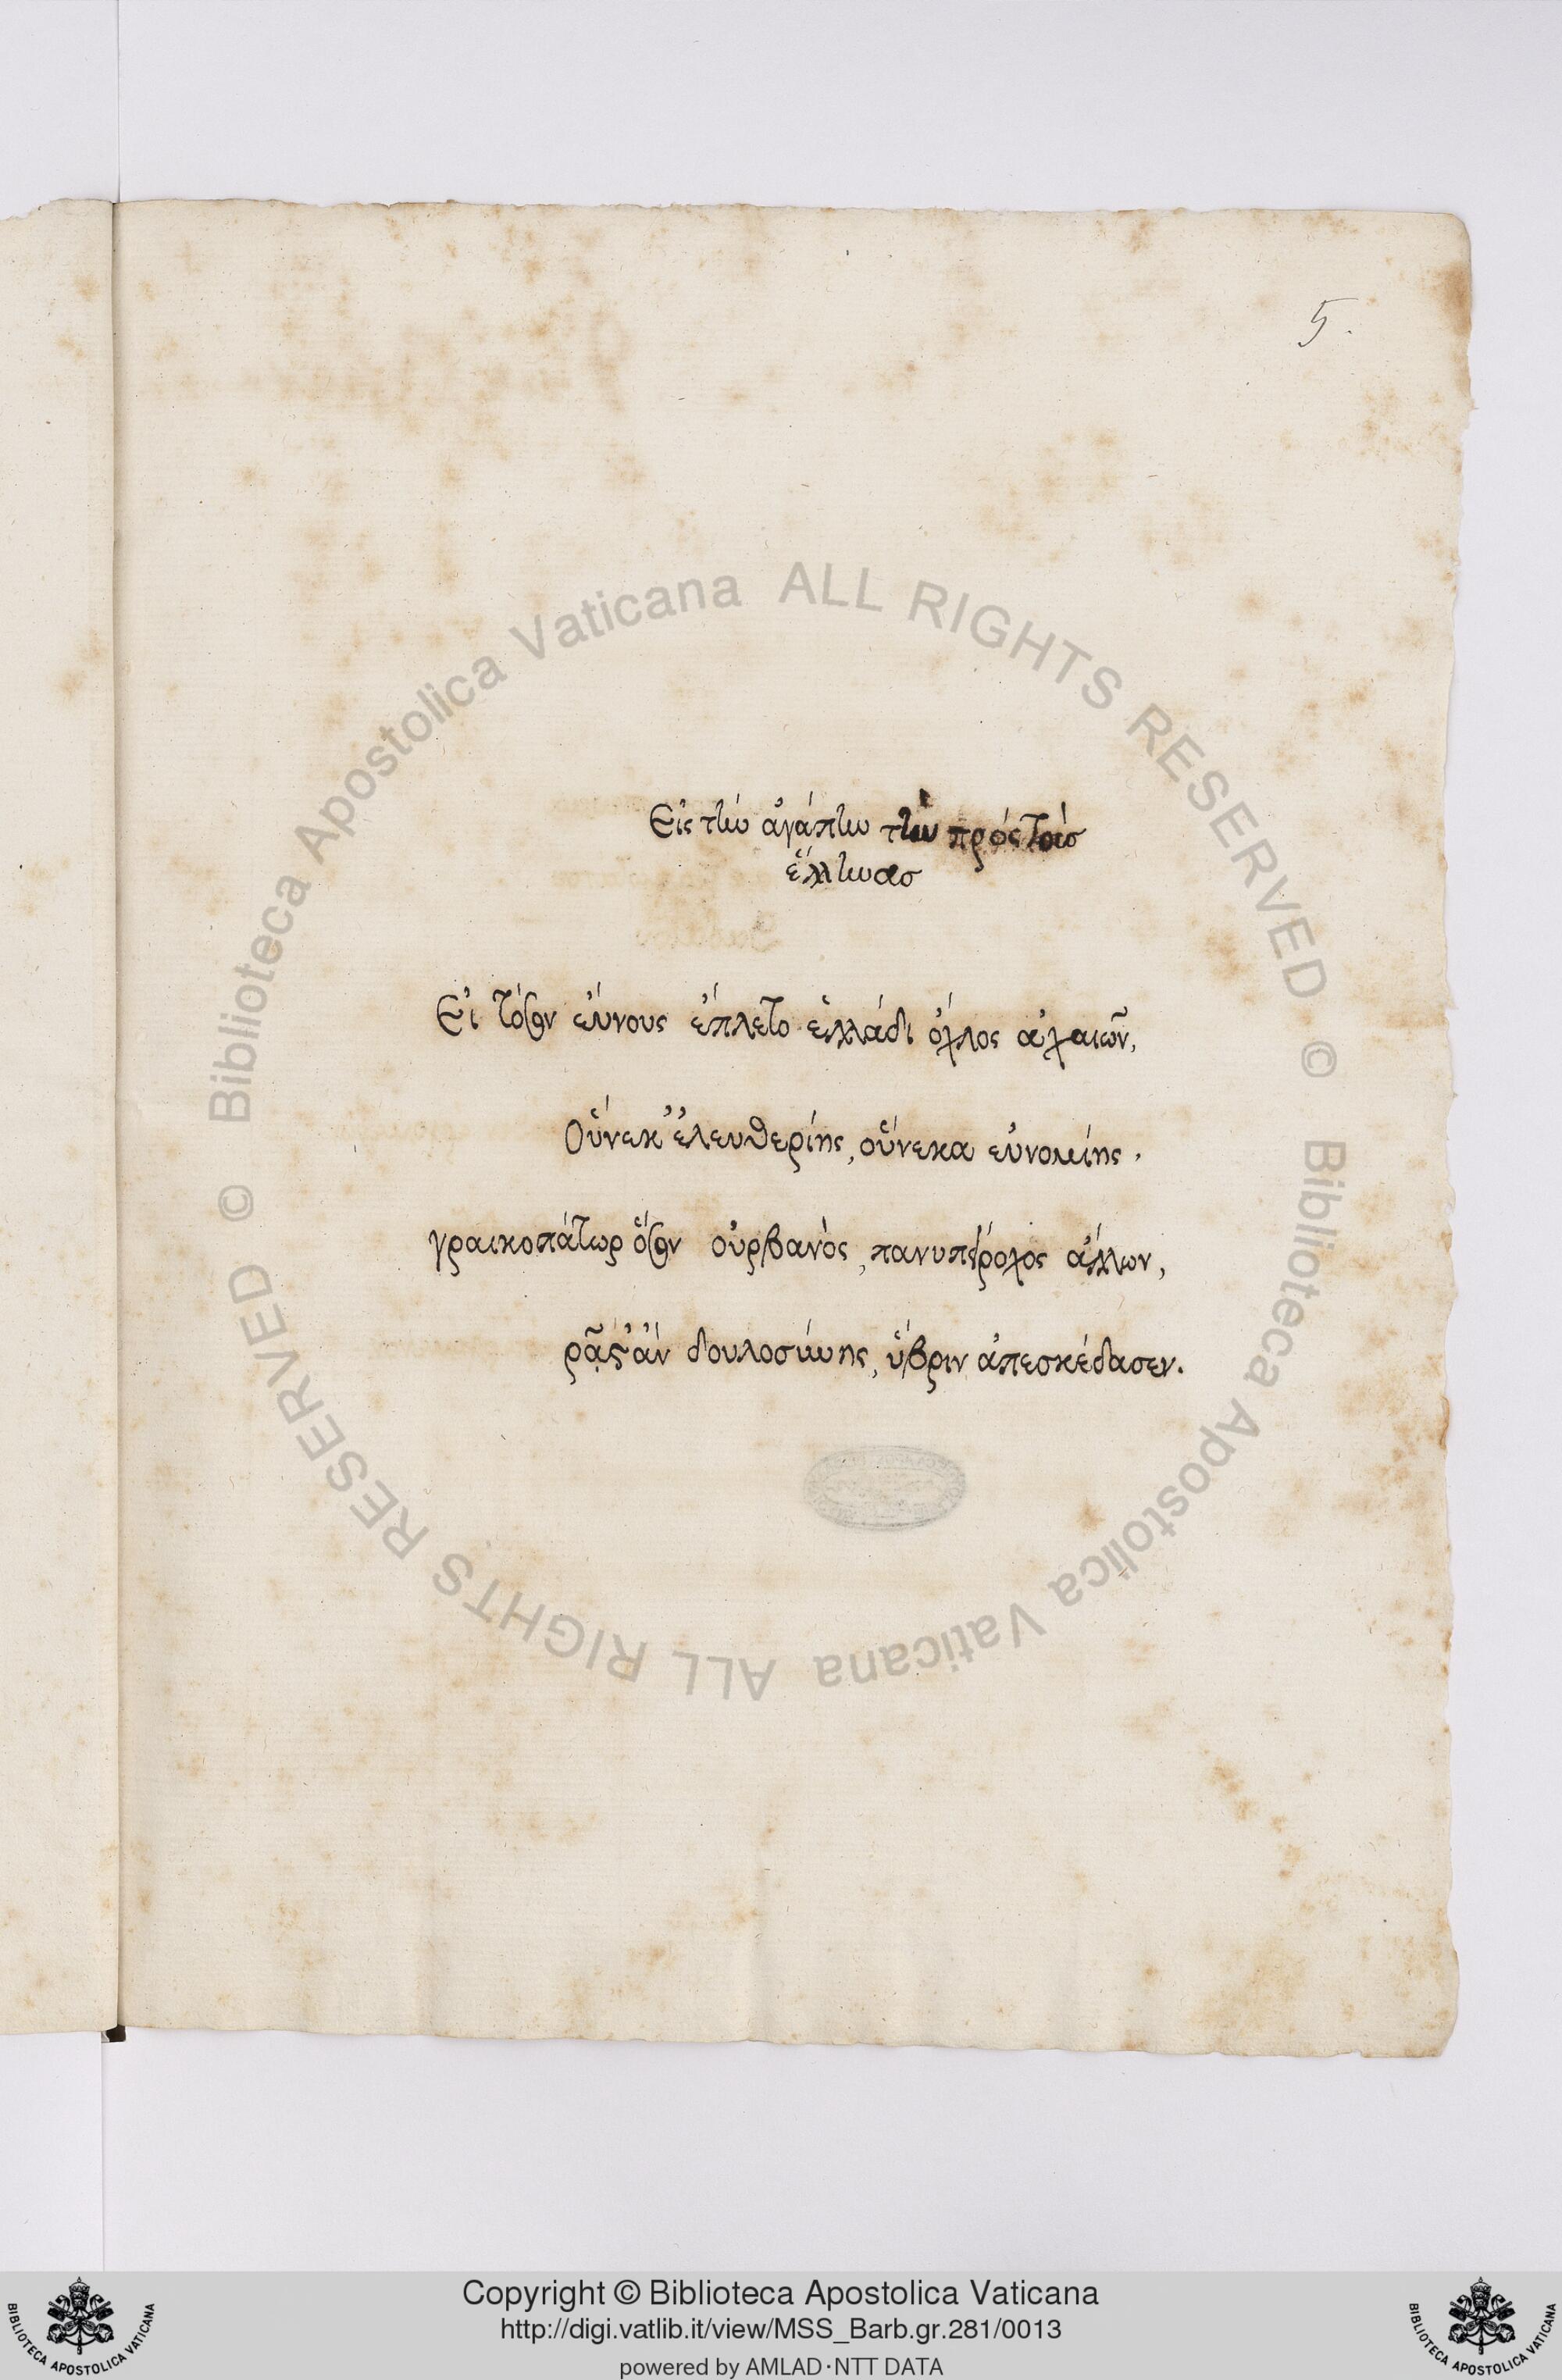 5.
Εἰς τὴν ἀγάπην τὴν πρὸς τοὺς
ἕλληνας
Εἰ τόσον εύνους έπλετο ἑλλάδι όχλος ἀχαιῶν,
Οὕνεκ' ἐλευθερίης, οὕνεκα εὐνομίης.
γραικοπάτωρ ὅσον οὐρβανὸς, πανυπείροχος ἄλλων,
ρᾷστ' ἂν δουλοσύνης, ὕβριν ἀπεσκέδασεν.
© Biblioteca Apostolica Vaticana ALL RIGHTS RESERVED
© Biblioteca Apostolica Vaticana ALL RIGHTS RESERVED
Copyright © Biblioteca Apostolica Vaticana
http://digi.vatlib.it/view/MSS_Barb.gr.281/0013
powered by AMLAD·NTT DATA
BIBLIOTECA APOSTOLICA VATICANA
BIBLIOTECA APOSTOLICA VATICANA